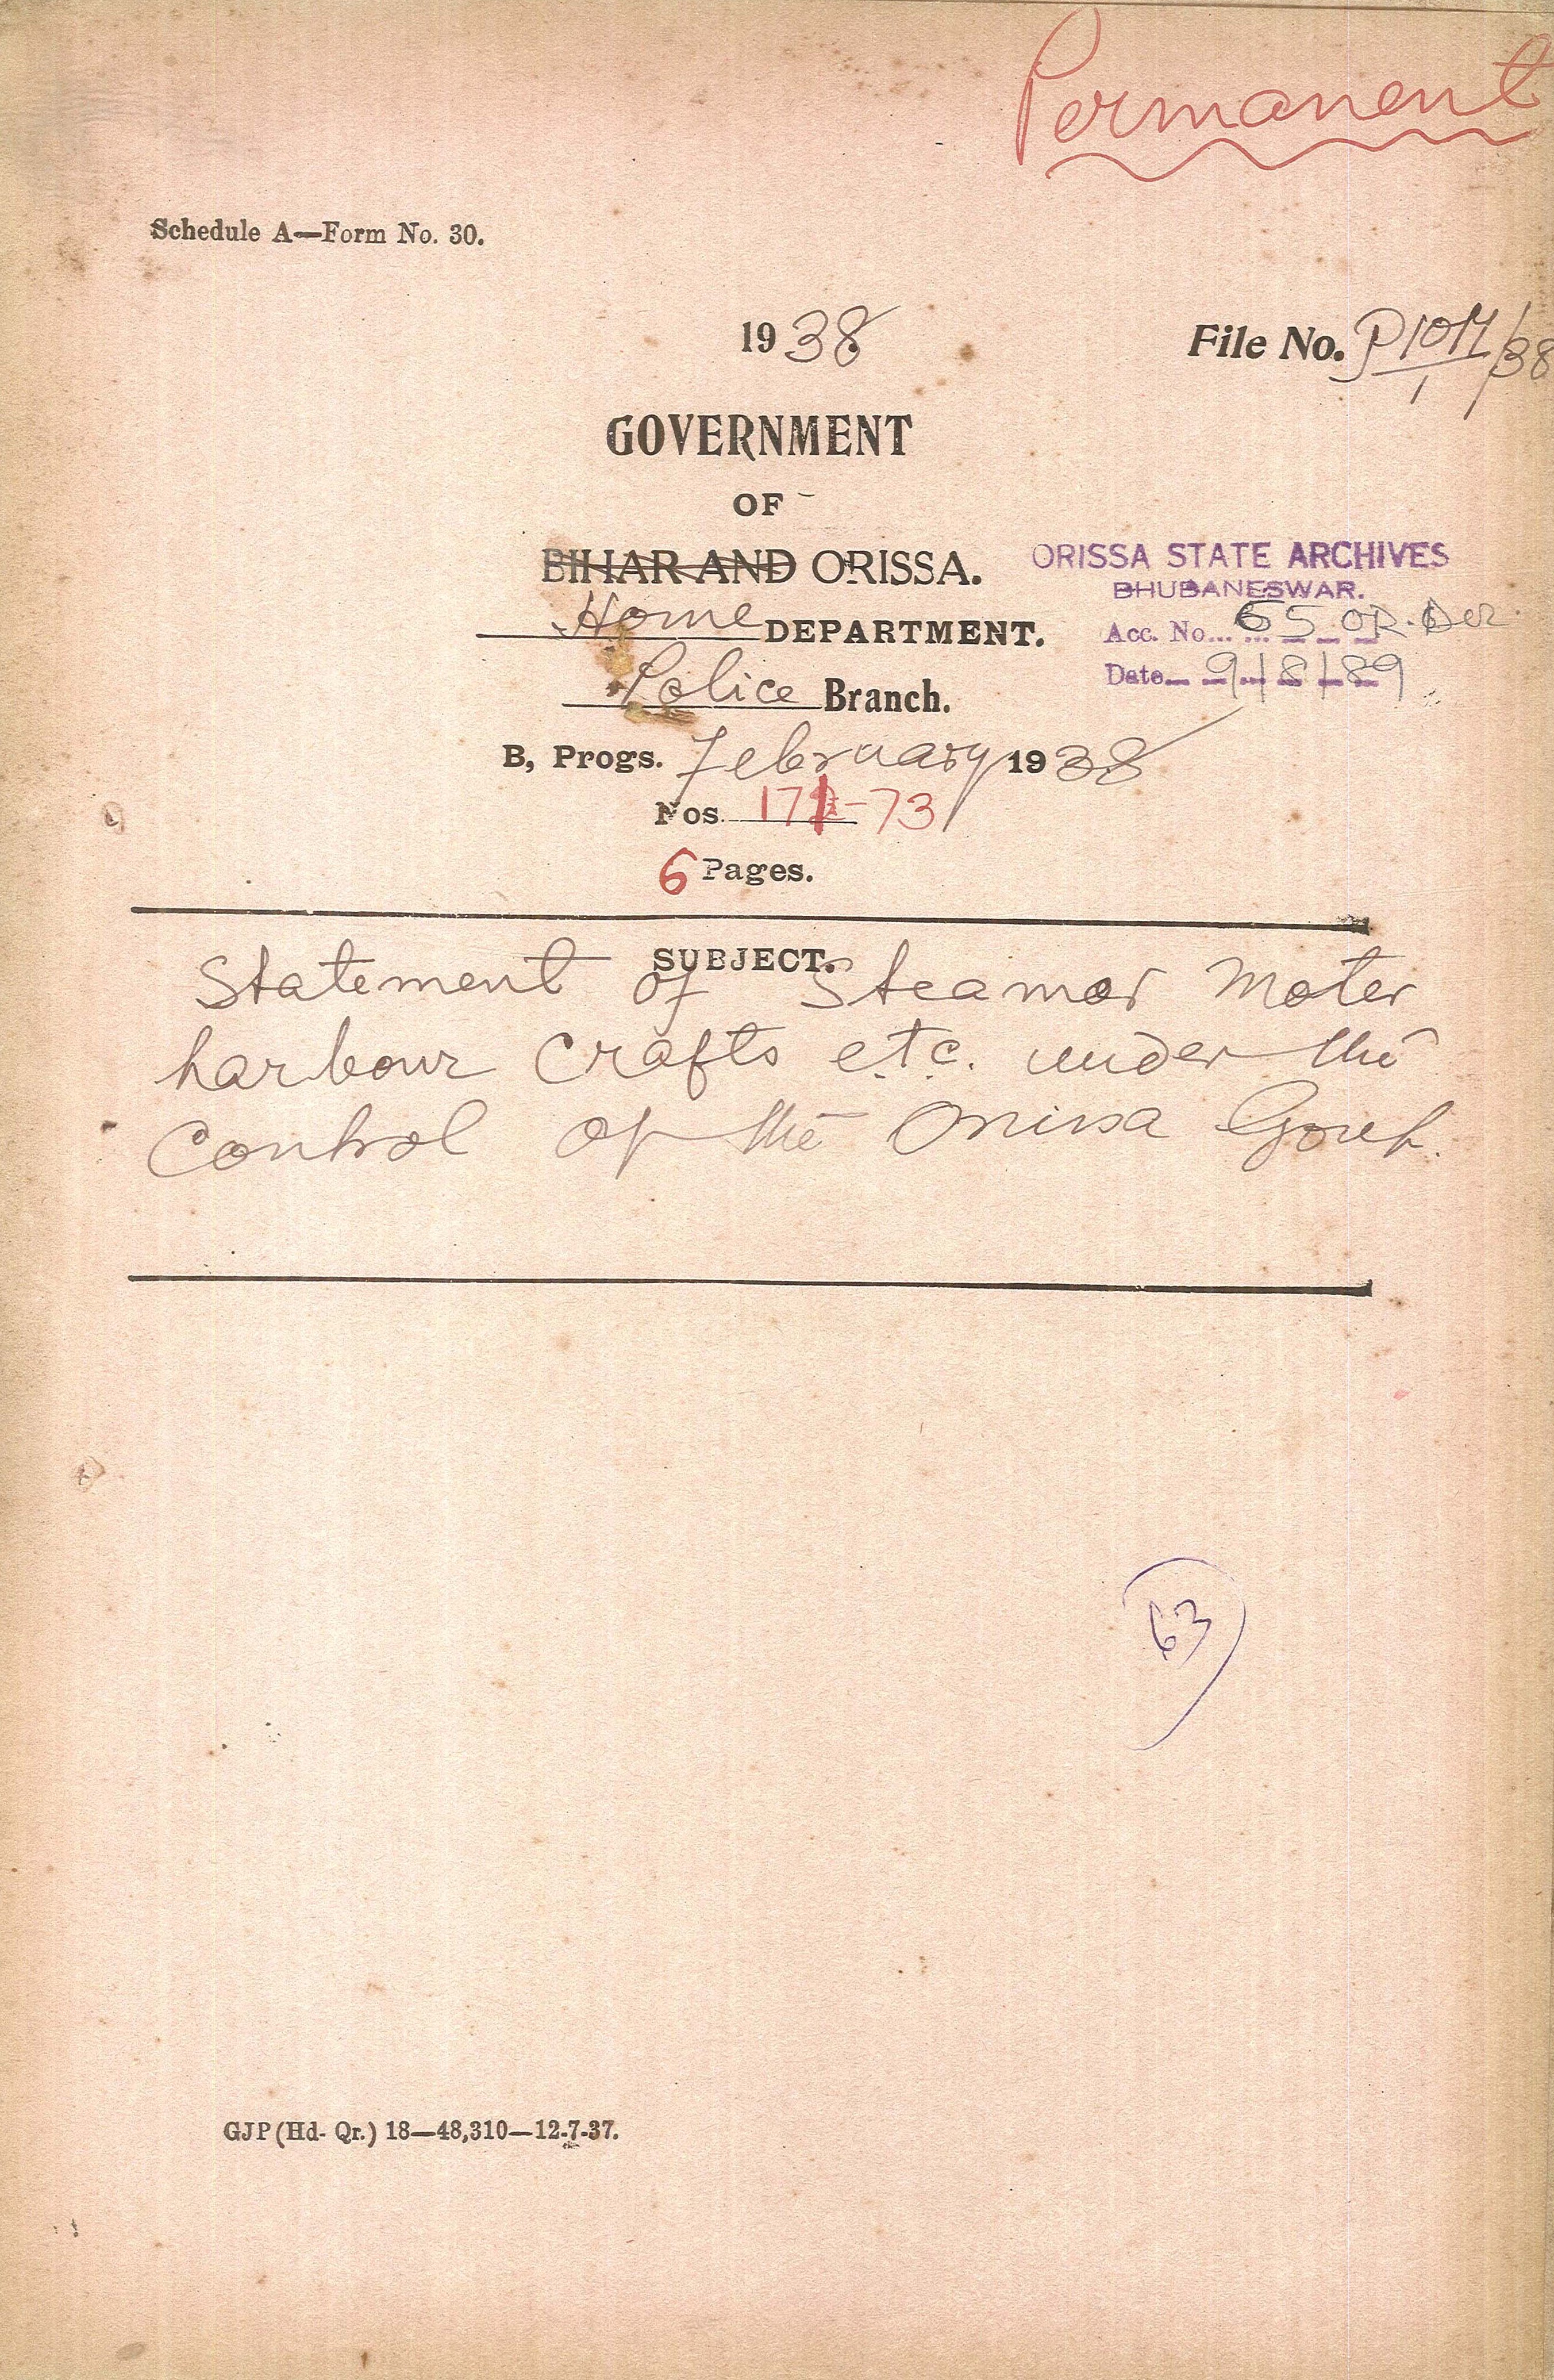 Permanent
Schedule A—Form No. 30.
1938
File No. P10M/1/38
GOVERNMENT
OF
BIHAR AND ORISSA.
ORISSA STATE ARCHIVES
BHUBANESWAR.
Home DEPARTMENT.
Acc. No... 65 OR.
Police Branch.
Date 9/8/89
B, Progs. February 1938
Nos. 171-73
6 Pages.
SUBJECT.
Statement of Steamer Moter
harbour Crafts etc. under the
Control of the Orissa Govt.
63
GJP (Hd- Qr.) 18—48,310—12-7-37.